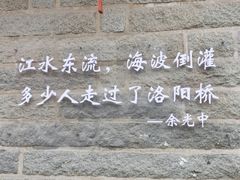 江水东流，海波倒灌
多少人走过了洛阳桥
—余光中